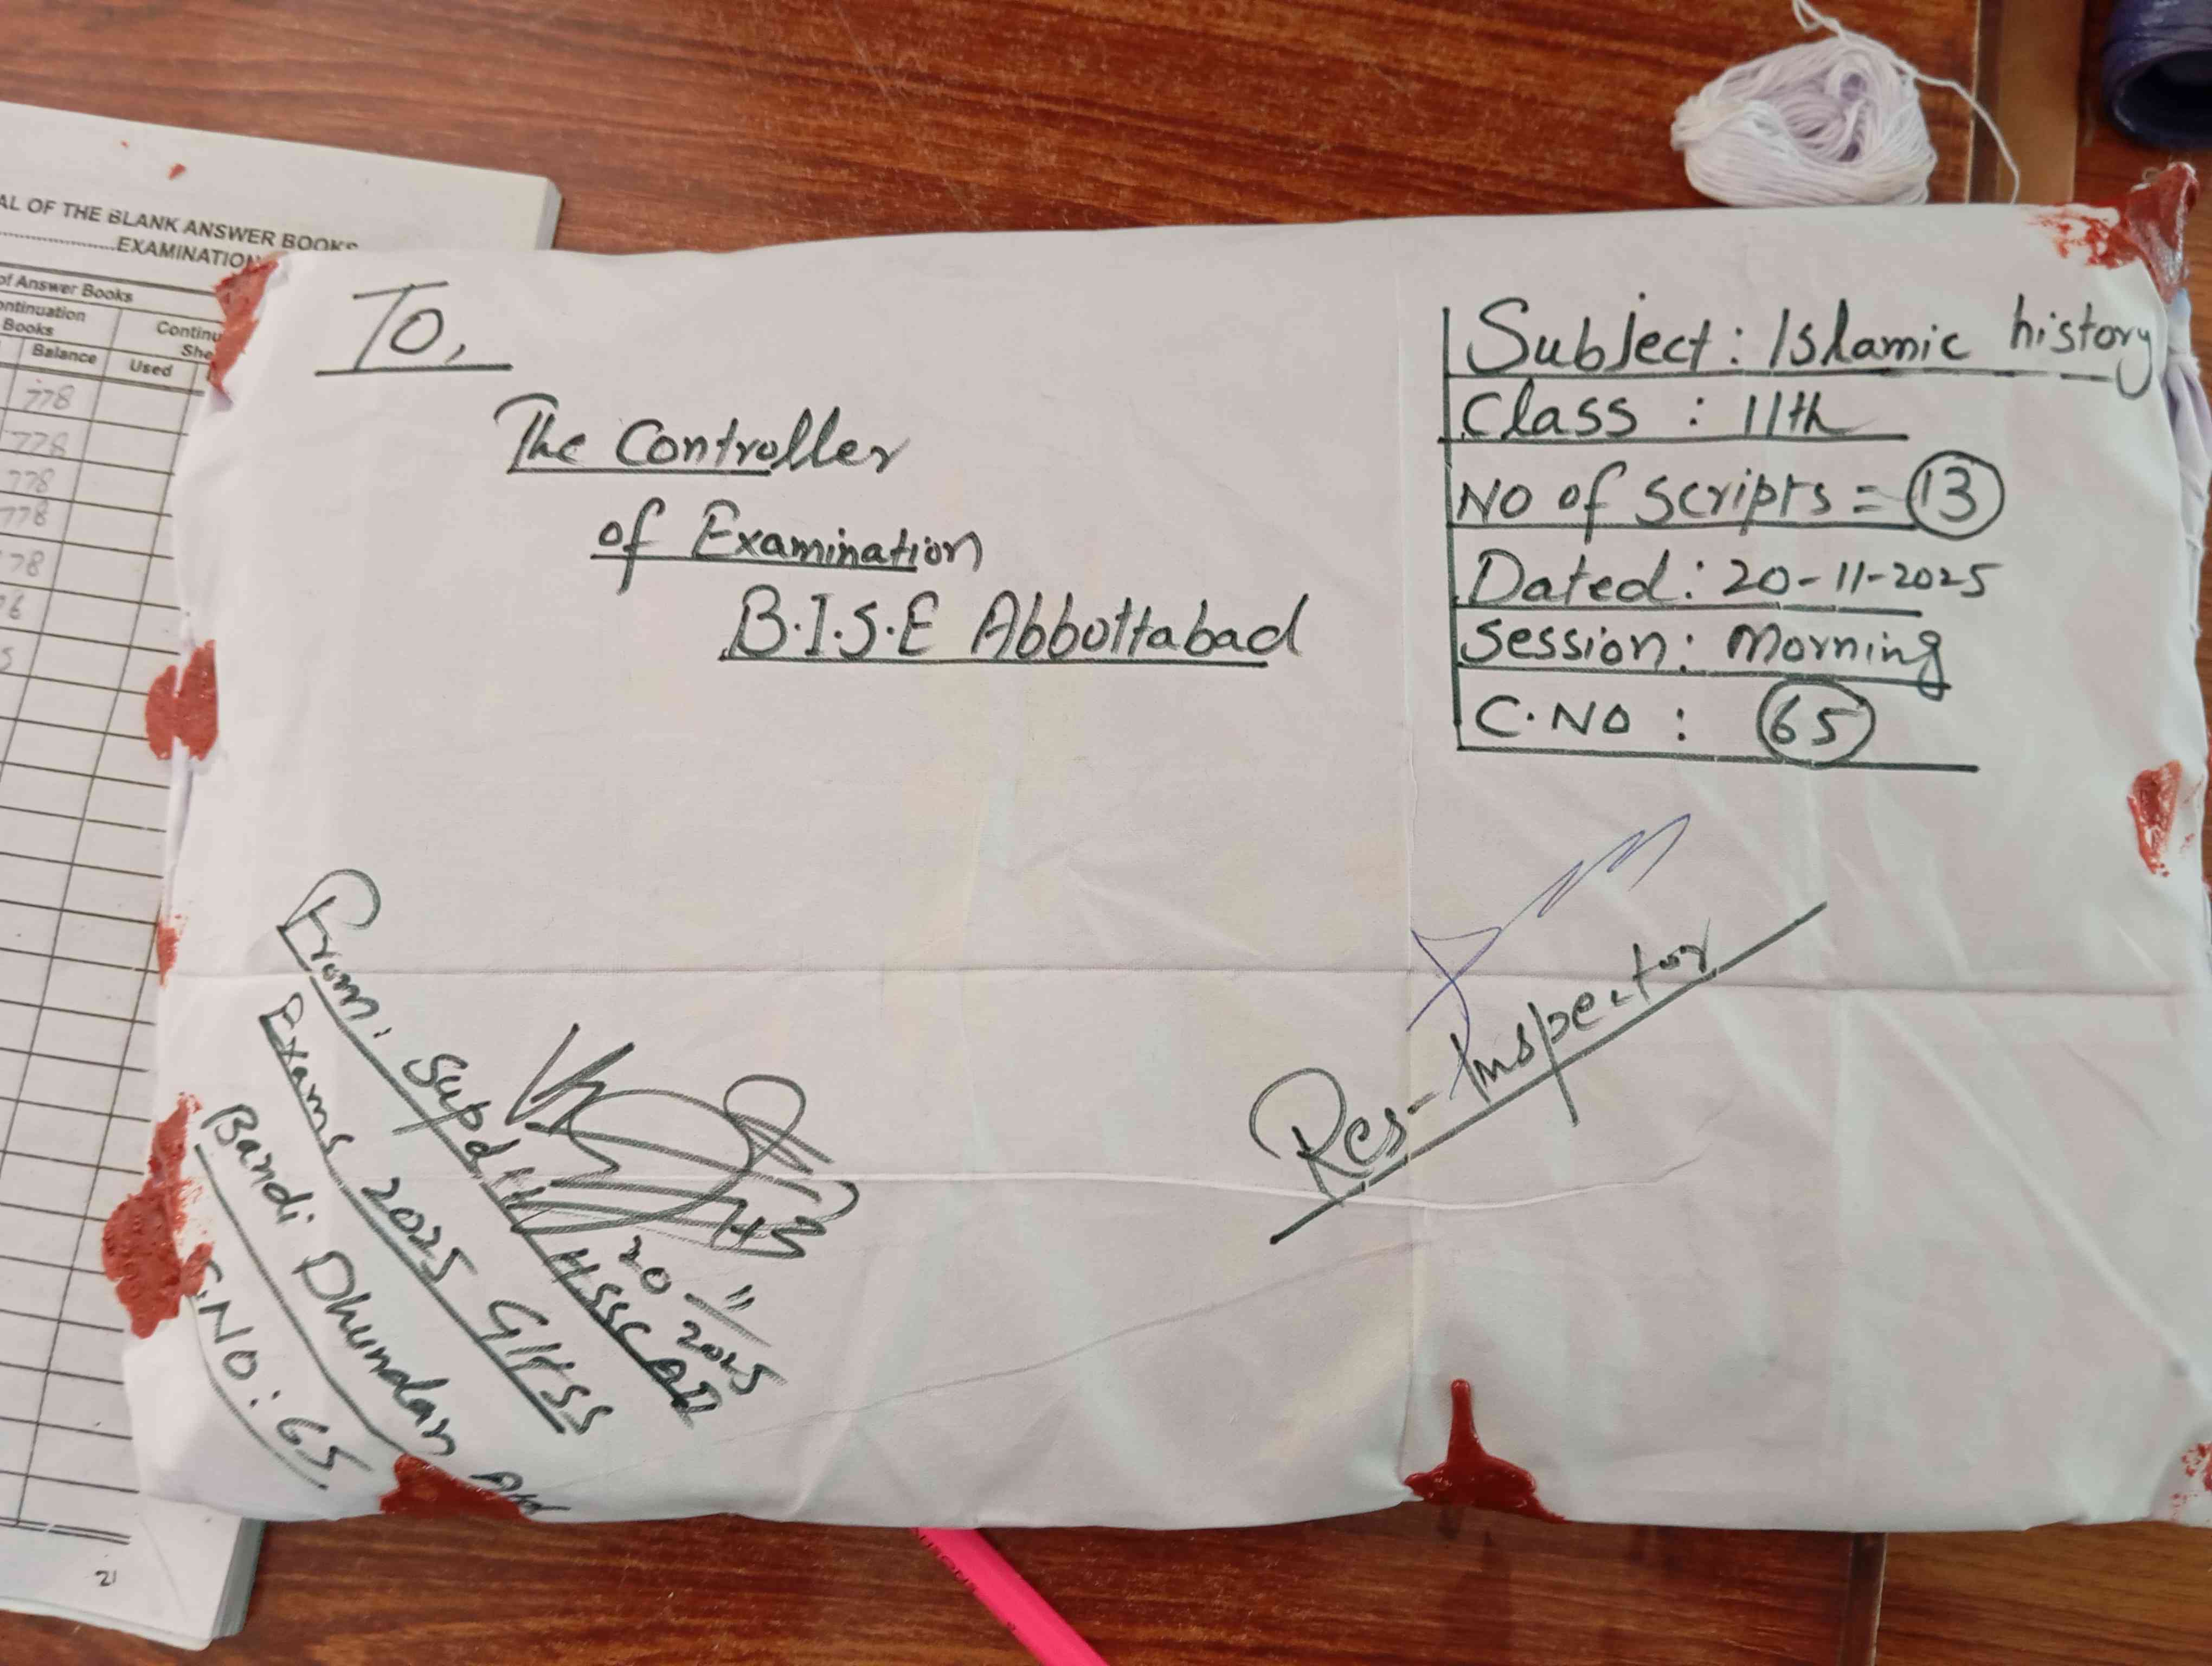 AL OF THE BLANK ANSWER BOOKS
EXAMINATION
of Answer Books
ontinuation Books
Continu
She
Balance
Used
778
778
778
778
78
21
To,
The Controller
of Examination
B.I.S.E Abbottabad
Subject: Islamic history
Class : 11th
No of Scripts = 13
Dated: 20-11-2025
Session: Morning
C.NO : 65
Res-Inspector
From: Supdtt HSSC
Exams 2025 GHSS
Bandi Dhundan Atd
C.NO: 65
20
11
2025